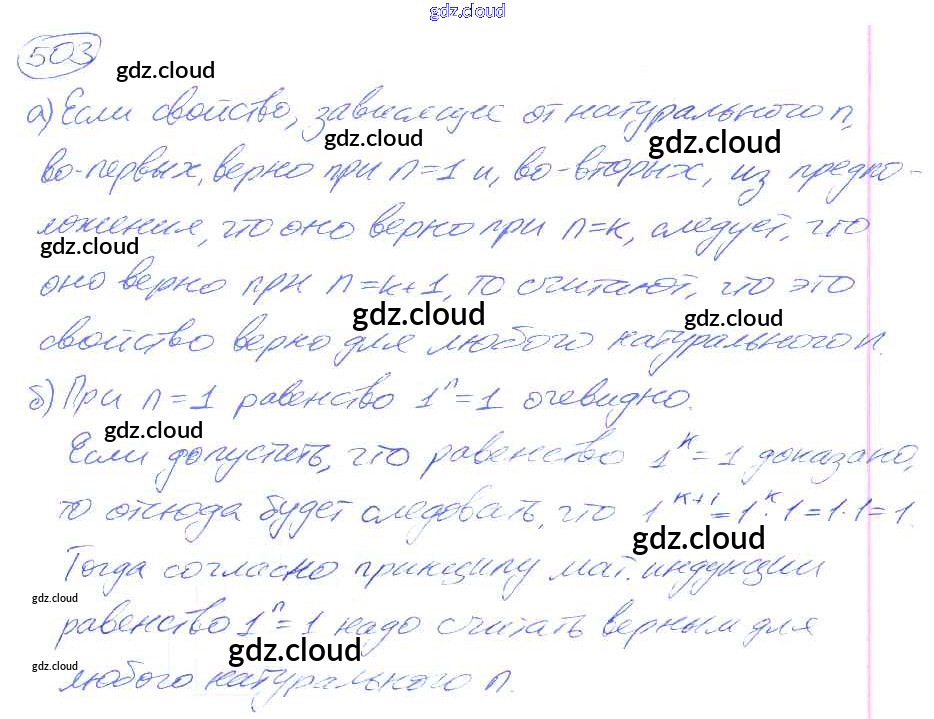 gdz.cloud
503
gdz.cloud
а) Если свойство, зависящее от натурального n,
gdz.cloud
gdz.cloud
во-первых, верно при n=1 и, во-вторых, из предпо-
ложения, что оно верно при n=k, следует, что
gdz.cloud
оно верно при n=k+1, то считают, что это
gdz.cloud
gdz.cloud
свойство верно для любого натурального n.
б) При n=1 равенство 1ⁿ=1 очевидно.
gdz.cloud
Если допустить, что равенство 1ᵏ=1 доказано,
то отсюда будет следовать, что 1ᵏ⁺¹=1ᵏ·1=1·1=1.
gdz.cloud
Тогда согласно принципу мат. индукции
gdz.cloud
равенство 1ⁿ=1 надо считать верным для
gdz.cloud
gdz.cloud
любого натурального n.